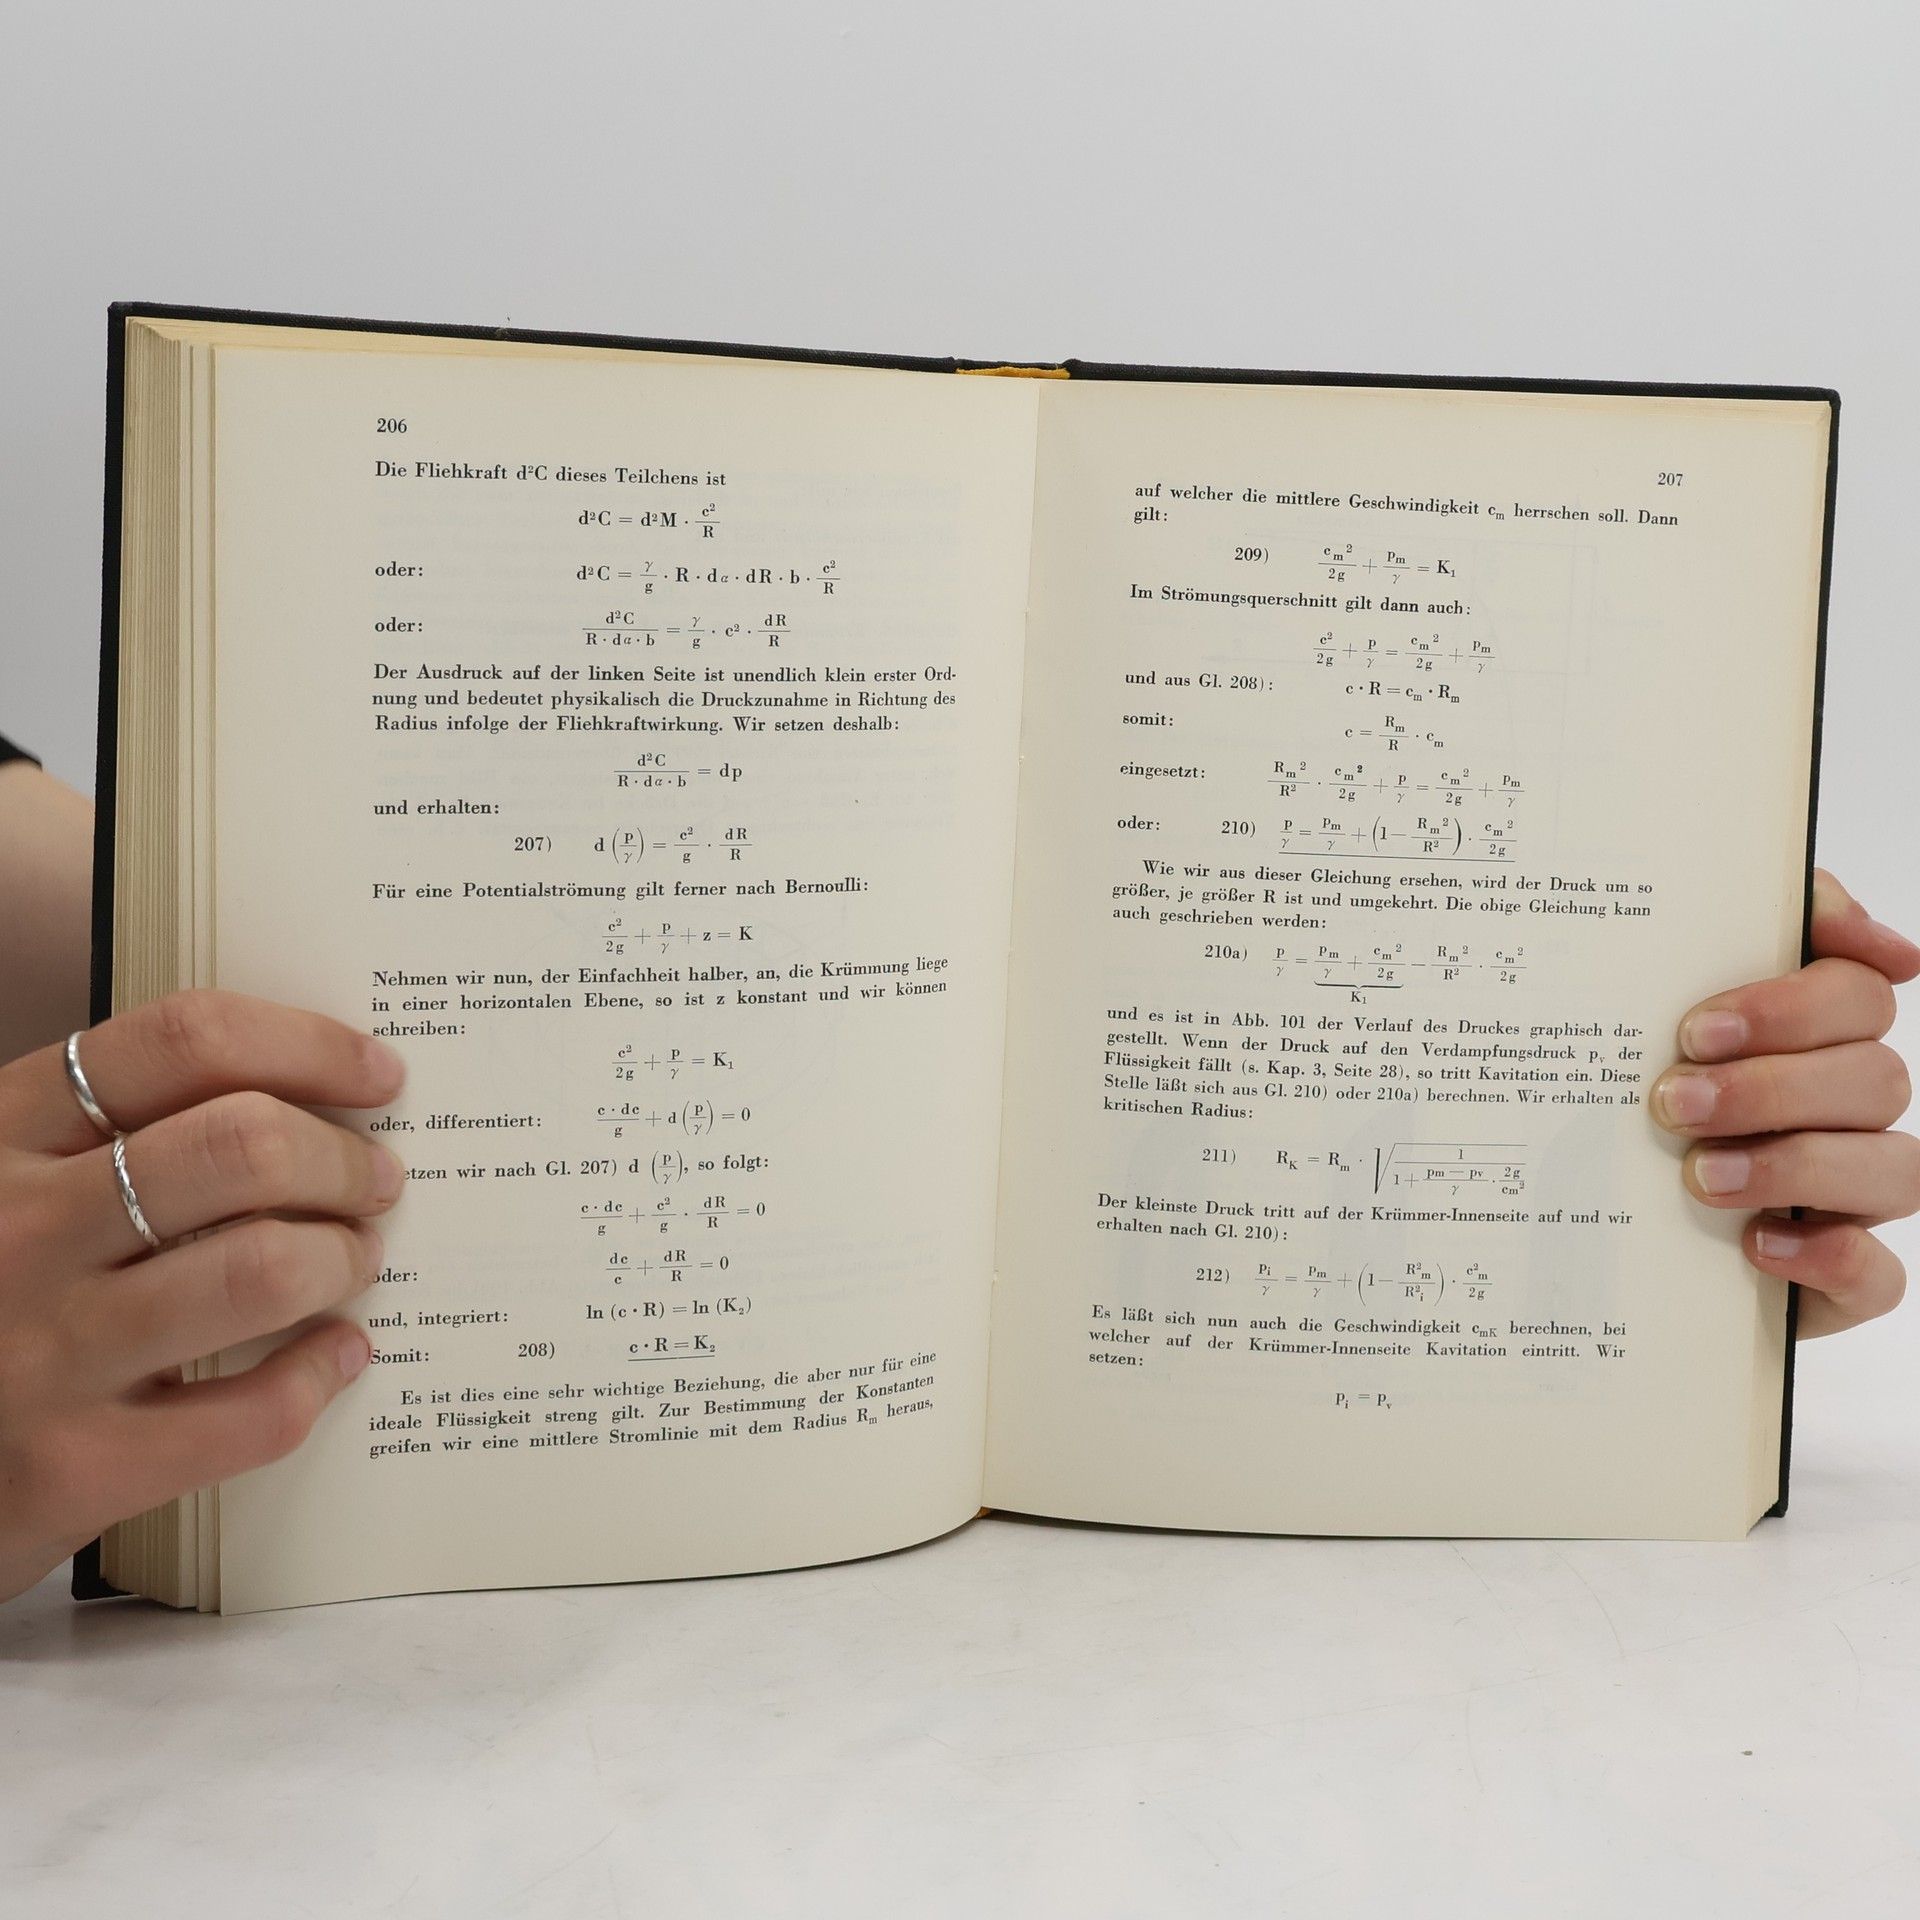 206
Die Fliehkraft d²C dieses Teilchens ist
d²C = d²M · c²/R
oder: d²C = γ/g · R · dα · dR · b · c²/R
oder: d²C/(R · dα · b) = γ/g · c² · dR/R
Der Ausdruck auf der linken Seite ist unendlich klein erster Ord-
nung und bedeutet physikalisch die Druckzunahme in Richtung des
Radius infolge der Fliehkraftwirkung. Wir setzen deshalb:
d²C/(R · dα · b) = dp
und erhalten:
207) d (p/γ) = c²/g · dR/R
Für eine Potentialströmung gilt ferner nach Bernoulli:
c²/2g + p/γ + z = K
Nehmen wir nun, der Einfachheit halber, an, die Krümmung liege
in einer horizontalen Ebene, so ist z konstant und wir können
schreiben:
c²/2g + p/γ = K₁
oder, differentiert: c · dc/g + d (p/γ) = 0
etzen wir nach Gl. 207) d (p/γ), so folgt:
c · dc/g + c²/g · dR/R = 0
oder: dc/c + dR/R = 0
und, integriert: ln (c · R) = ln (K₂)
Somit: 208) c · R = K₂
Es ist dies eine sehr wichtige Beziehung, die aber nur für eine
ideale Flüssigkeit streng gilt. Zur Bestimmung der Konstanten
greifen wir eine mittlere Stromlinie mit dem Radius Rₘ heraus,
207
auf welcher die mittlere Geschwindigkeit cₘ herrschen soll. Dann
gilt:
209) cₘ²/2g + pₘ/γ = K₁
Im Strömungsquerschnitt gilt dann auch:
c²/2g + p/γ = cₘ²/2g + pₘ/γ
und aus Gl. 208): c · R = cₘ · Rₘ
somit: c = Rₘ/R · cₘ
eingesetzt: Rₘ²/R² · cₘ²/2g + p/γ = cₘ²/2g + pₘ/γ
oder: 210) p/γ = pₘ/γ + (1 − Rₘ²/R²) · cₘ²/2g
Wie wir aus dieser Gleichung ersehen, wird der Druck um so
größer, je größer R ist und umgekehrt. Die obige Gleichung kann
auch geschrieben werden:
210a) p/γ = pₘ/γ + cₘ²/2g − Rₘ²/R² · cₘ²/2g
K₁
und es ist in Abb. 101 der Verlauf des Druckes graphisch dar-
gestellt. Wenn der Druck auf den Verdampfungsdruck pᵥ der
Flüssigkeit fällt (s. Kap. 3, Seite 28), so tritt Kavitation ein. Diese
Stelle läßt sich aus Gl. 210) oder 210a) berechnen. Wir erhalten als
kritischen Radius:
211) R_K = Rₘ · √(1/(1 + (pm — pv)/γ · 2g/cm²))
Der kleinste Druck tritt auf der Krümmer-Innenseite auf und wir
erhalten nach Gl. 210):
212) pᵢ/γ = pₘ/γ + (1 − R²ₘ/R²ᵢ) · c²ₘ/2g
Es läßt sich nun auch die Geschwindigkeit c_mK berechnen, bei
welcher auf der Krümmer-Innenseite Kavitation eintritt. Wir
setzen:
pᵢ = pᵥ